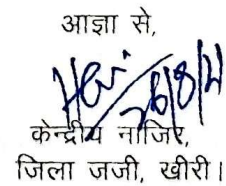 आज्ञा से,
26/8/21
केन्द्रीय नाजिर,
जिला जजी, खीरी।